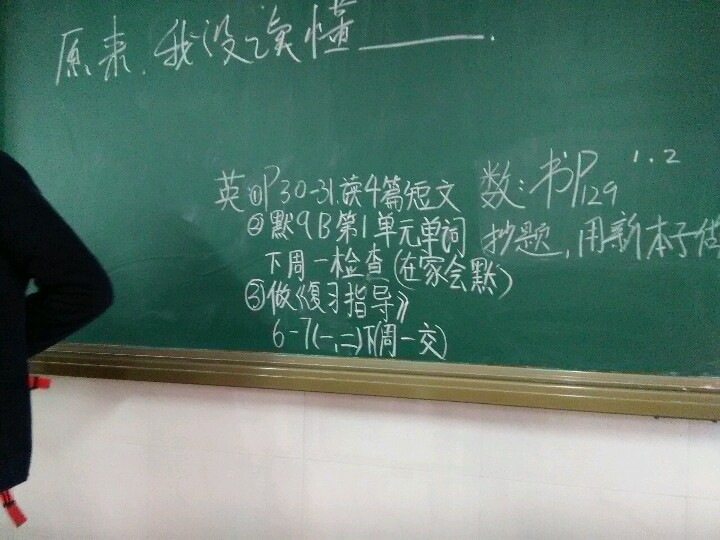 原来,我没读懂______.
英:①P30-31.读4篇短文
②默9B第1单元单词
下周一检查(在家会默)
③做《复习指导》
6-7(一,二)(周一交)
数:书P129 1.2
抄题,用新本子做